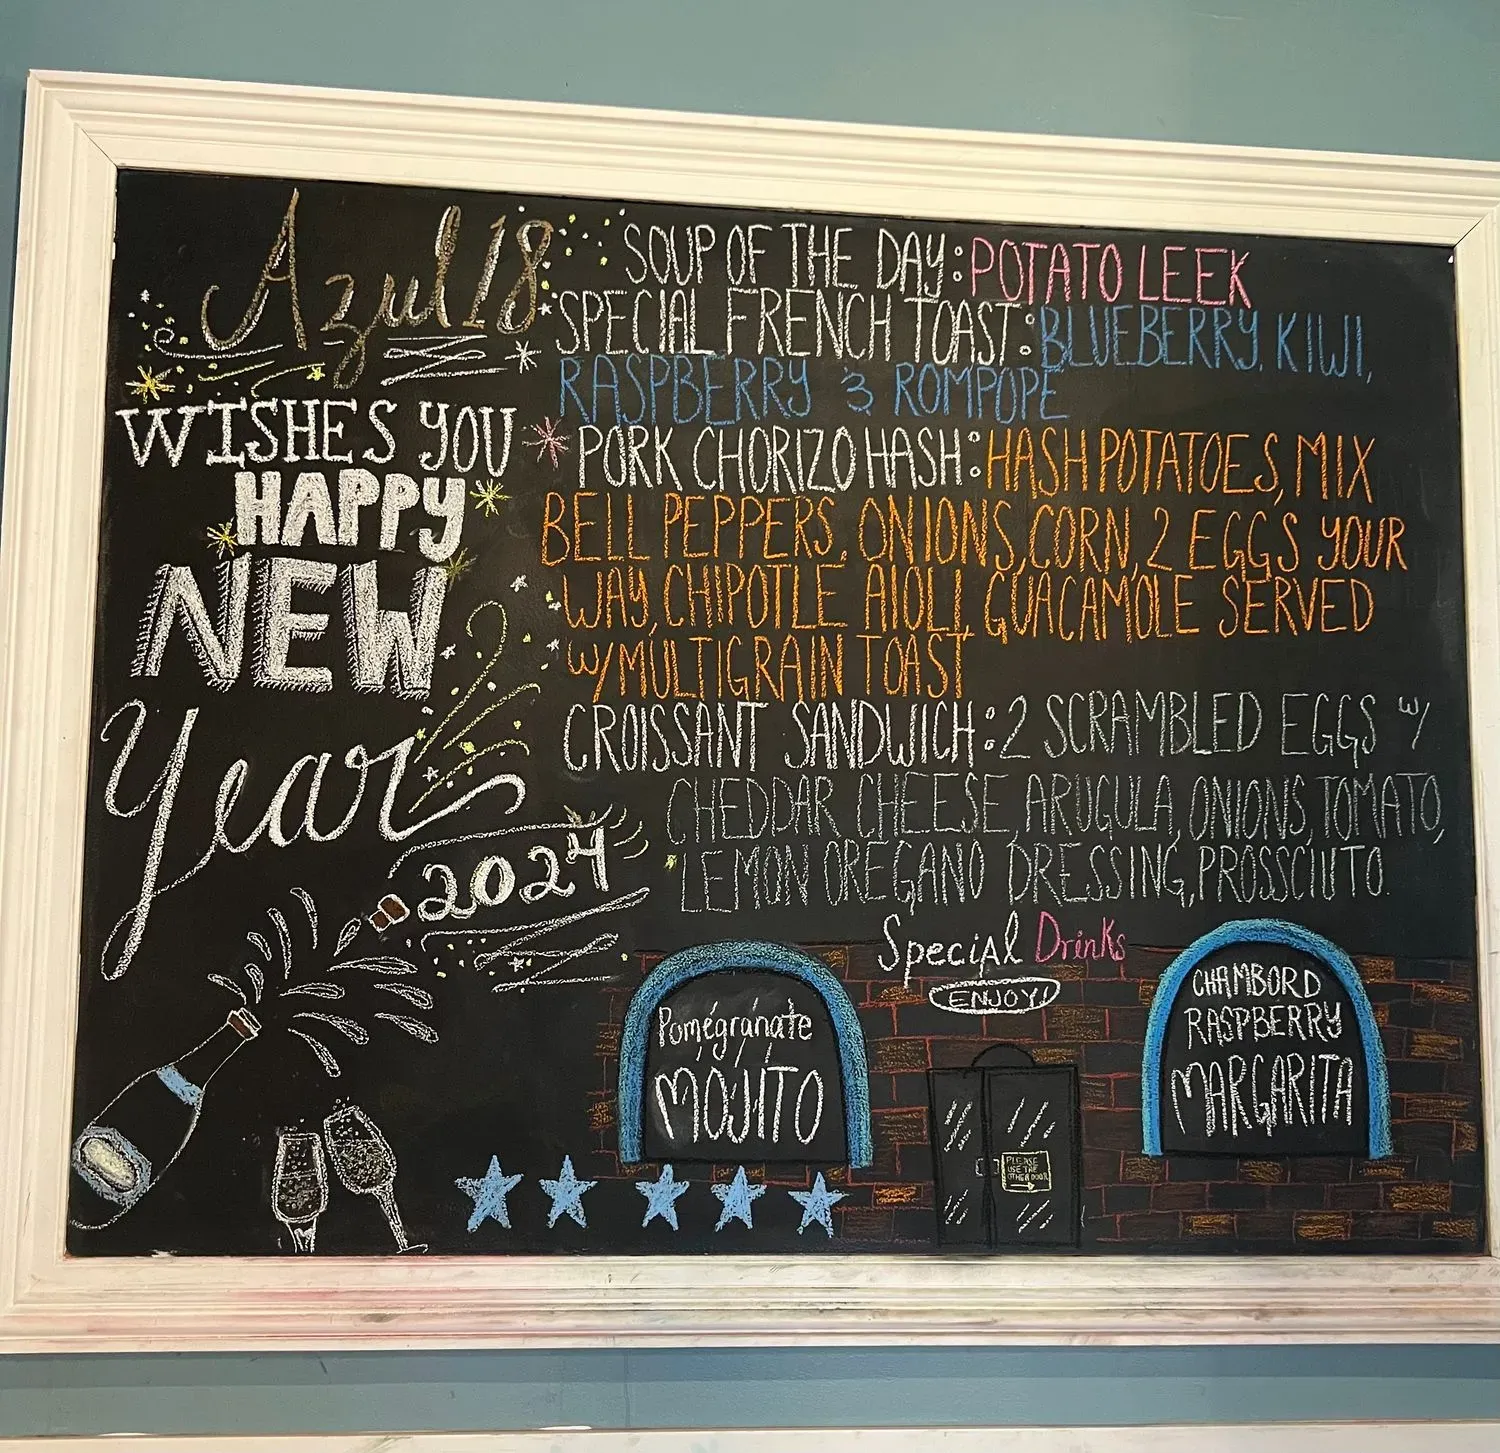 Azul 18
WISHES YOU
HAPPY
NEW
Year
2024
SOUP OF THE DAY: POTATO LEEK
SPECIAL FRENCH TOAST: BLUEBERRY, KIWI,
RASPBERRY & ROMPOPE
PORK CHORIZO HASH: HASH POTATOES, MIX
BELL PEPPERS, ONIONS, CORN, 2 EGGS YOUR
WAY, CHIPOTLE AIOLI, GUACAMOLE SERVED
W/MULTIGRAIN TOAST
CROISSANT SANDWICH: 2 SCRAMBLED EGGS W/
CHEDDAR CHEESE, ARUGULA, ONIONS, TOMATO,
LEMON OREGANO DRESSING, PROSSCIUTO.
Special Drinks
ENJOY!
Pomegranate
MOJITO
CHAMBORD
RASPBERRY
MARGARITA
PLEASE
USE THE
OTHER DOOR